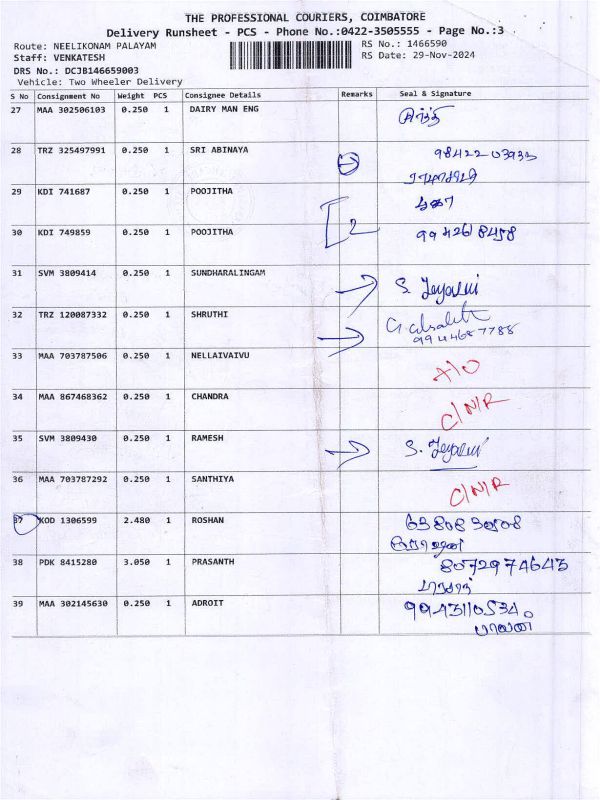 THE PROFESSIONAL COURIERS, COIMBATORE
Delivery Runsheet - PCS - Phone No.:0422-3505555 - Page No.:3
Route: NEELIKONAM PALAYAM
RS No.: 1466590
Staff: VENKATESH
RS Date: 29-Nov-2024
DRS No.: DCJB146659003
Vehicle: Two Wheeler Delivery
S No Consignment No Weight PCS Consignee Details Remarks Seal & Signature
27 MAA 302506103 0.250 1 DAIRY MAN ENG
28 TRZ 325497991 0.250 1 SRI ABINAYA
29 KDI 741687 0.250 1 POOJITHA
30 KDI 749859 0.250 1 POOJITHA 2 9942618458
31 SVM 3809414 0.250 1 SUNDHARALINGAM
32 TRZ 120087332 0.250 1 SHRUTHI
9944687788
33 MAA 703787506 0.250 1 NELLAIVAIVU A/O
34 MAA 867468362 0.250 1 CHANDRA C/N/R
35 SVM 3809430 0.250 1 RAMESH
36 MAA 703787292 0.250 1 SANTHIYA C/N/R
37 KOD 1306599 2.480 1 ROSHAN
38 PDK 8415280 3.050 1 PRASANTH 8072974643
39 MAA 302145630 0.250 1 ADROIT 9943110534